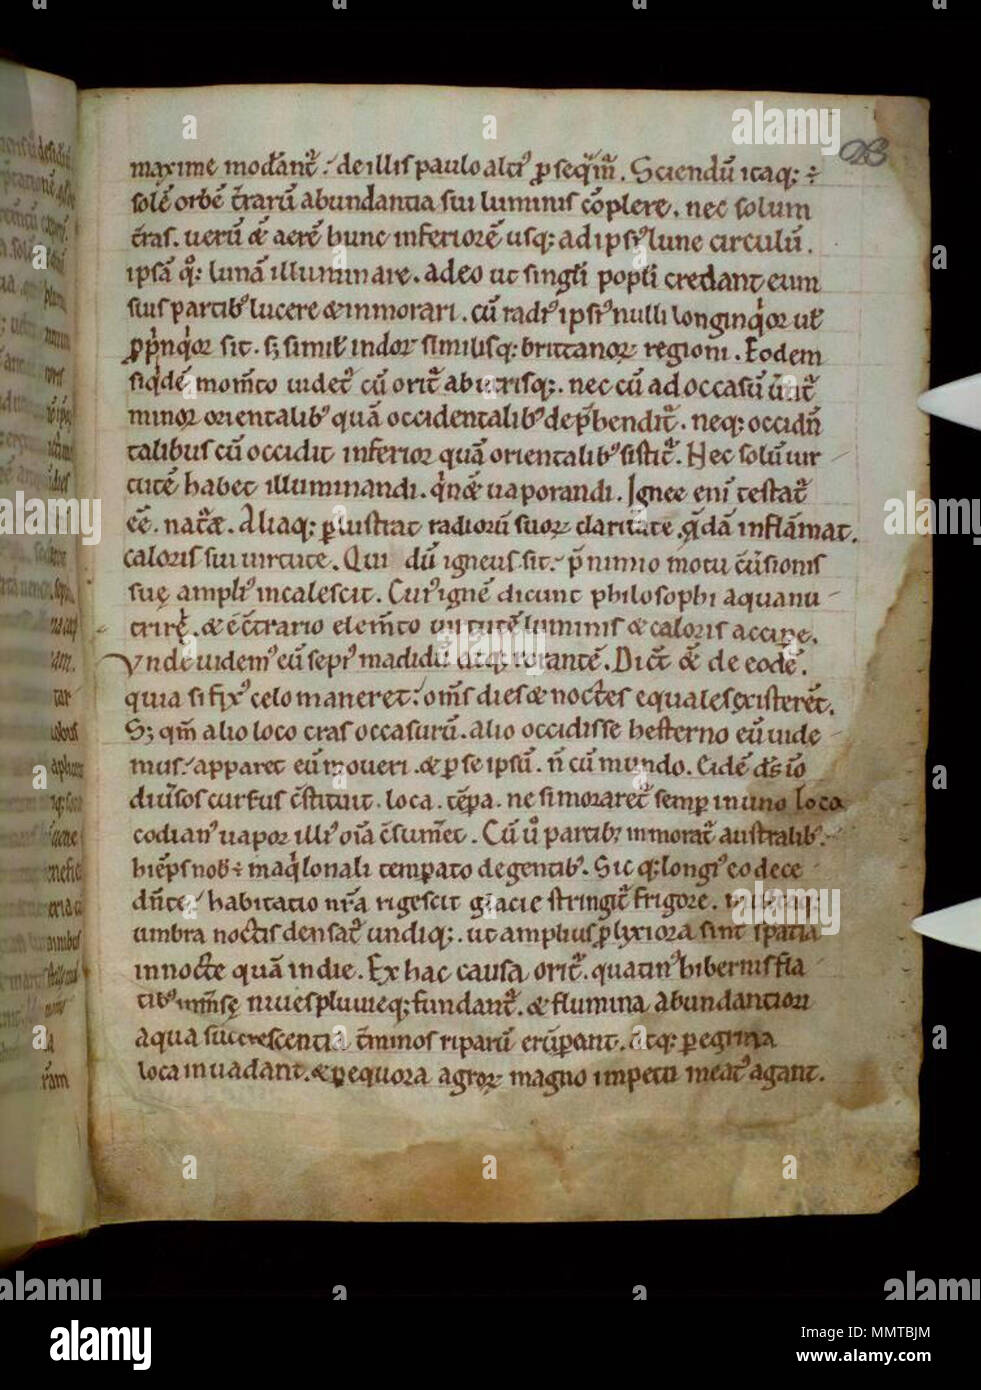 28
maxime modant᷑. de illis paulo alti᷒ ꝑ seqm̅. Sciendū itaq; ÷
solē orbē t̄rarū abundantia sui luminis cōplere. nec solum
t̄ras. uerū & aerē hunc inferiorē usq; ad ipsi᷒ lune circulū.
ipsā qꝫ lunā illuminare. adeo ut singli popli credant eum
suis partib᷒ lucere & inmorari. cū radi᷒ ipsi᷒ nulli longinqor ut
ꝓpinqor sit. sꝫ simil indor similisq; brittanoꝝ regioni. Eodem
siqdē mom̄to uidet᷑ cū orit᷑ ab utrisq;. nec cū ad occasū uenit᷑
minor orientalib᷒ quā occidentalib᷒ dep̄hendit᷑. neq; occidn̄
talibus cū occidit inferior quā orientalib᷒ sistit᷑. Hec solū uir
tutē habet illuminandi. uaporandi. Ignee eni᷒ testat᷑
ēē. nat᷑æ. Aliaq; ꝑlustrat radiorū suoꝝ claritate. qdā inflāmat.
caloris sui uirtute. Qui dū igneus sit. p̄ nimio motu cūsionis
suę ampli᷒ incalescit. Cui᷒ ignē dicunt philosophi aqua nu
trirę. & e c̄trario elem̄to uirtutē luminis & caloris accipe.
Vnde uidem᷒ eū sepi᷒ madidū atq; rorantē. Dict᷑ & de eodē.
quia si fix᷒ celo maneret. om̄s dies & noctes equales existerēt.
Sꝫ qm̄ alio loco cras occasurū. alio occidisse hesterno eū uide
mus. apparet eū moueri. & ꝑ se ipsū. n̄ cū mundo. Eidē dꝰ ıo
diuˀsos cursus c̄stituit. loca. tēpa. ne si moraret᷑ semꝑ in uno loco
codian᷒ uapor illi᷒ oı̄a c̄sum̄et. Cū uͦ partib᷒ inmorat᷑ australib᷒.
hieps nob ÷ maqlonali tempato degentib᷒. Sic q; longi᷒ eo dece
dn̄te. habitatio nr̄a rigescit glacie stringit᷑ frigore.
umbra noctis densat᷑ undiq;. ut amplius ꝓlyxiora sint spatia
in nocte quā in die. Ex hac causa orit᷑. quatin᷒ hibernis fla
tib᷒ immˀsę niues pluuieq; fundant᷑. & flumina abundantiori
aqua succrescentia t̄minos riparū erūpant. atq; ꝑegrina
loca inuadant. & ꝑ equora agroꝝ magno impetu meat᷒ agant.
alamy
Image ID: MMTBJM
www.alamy.com